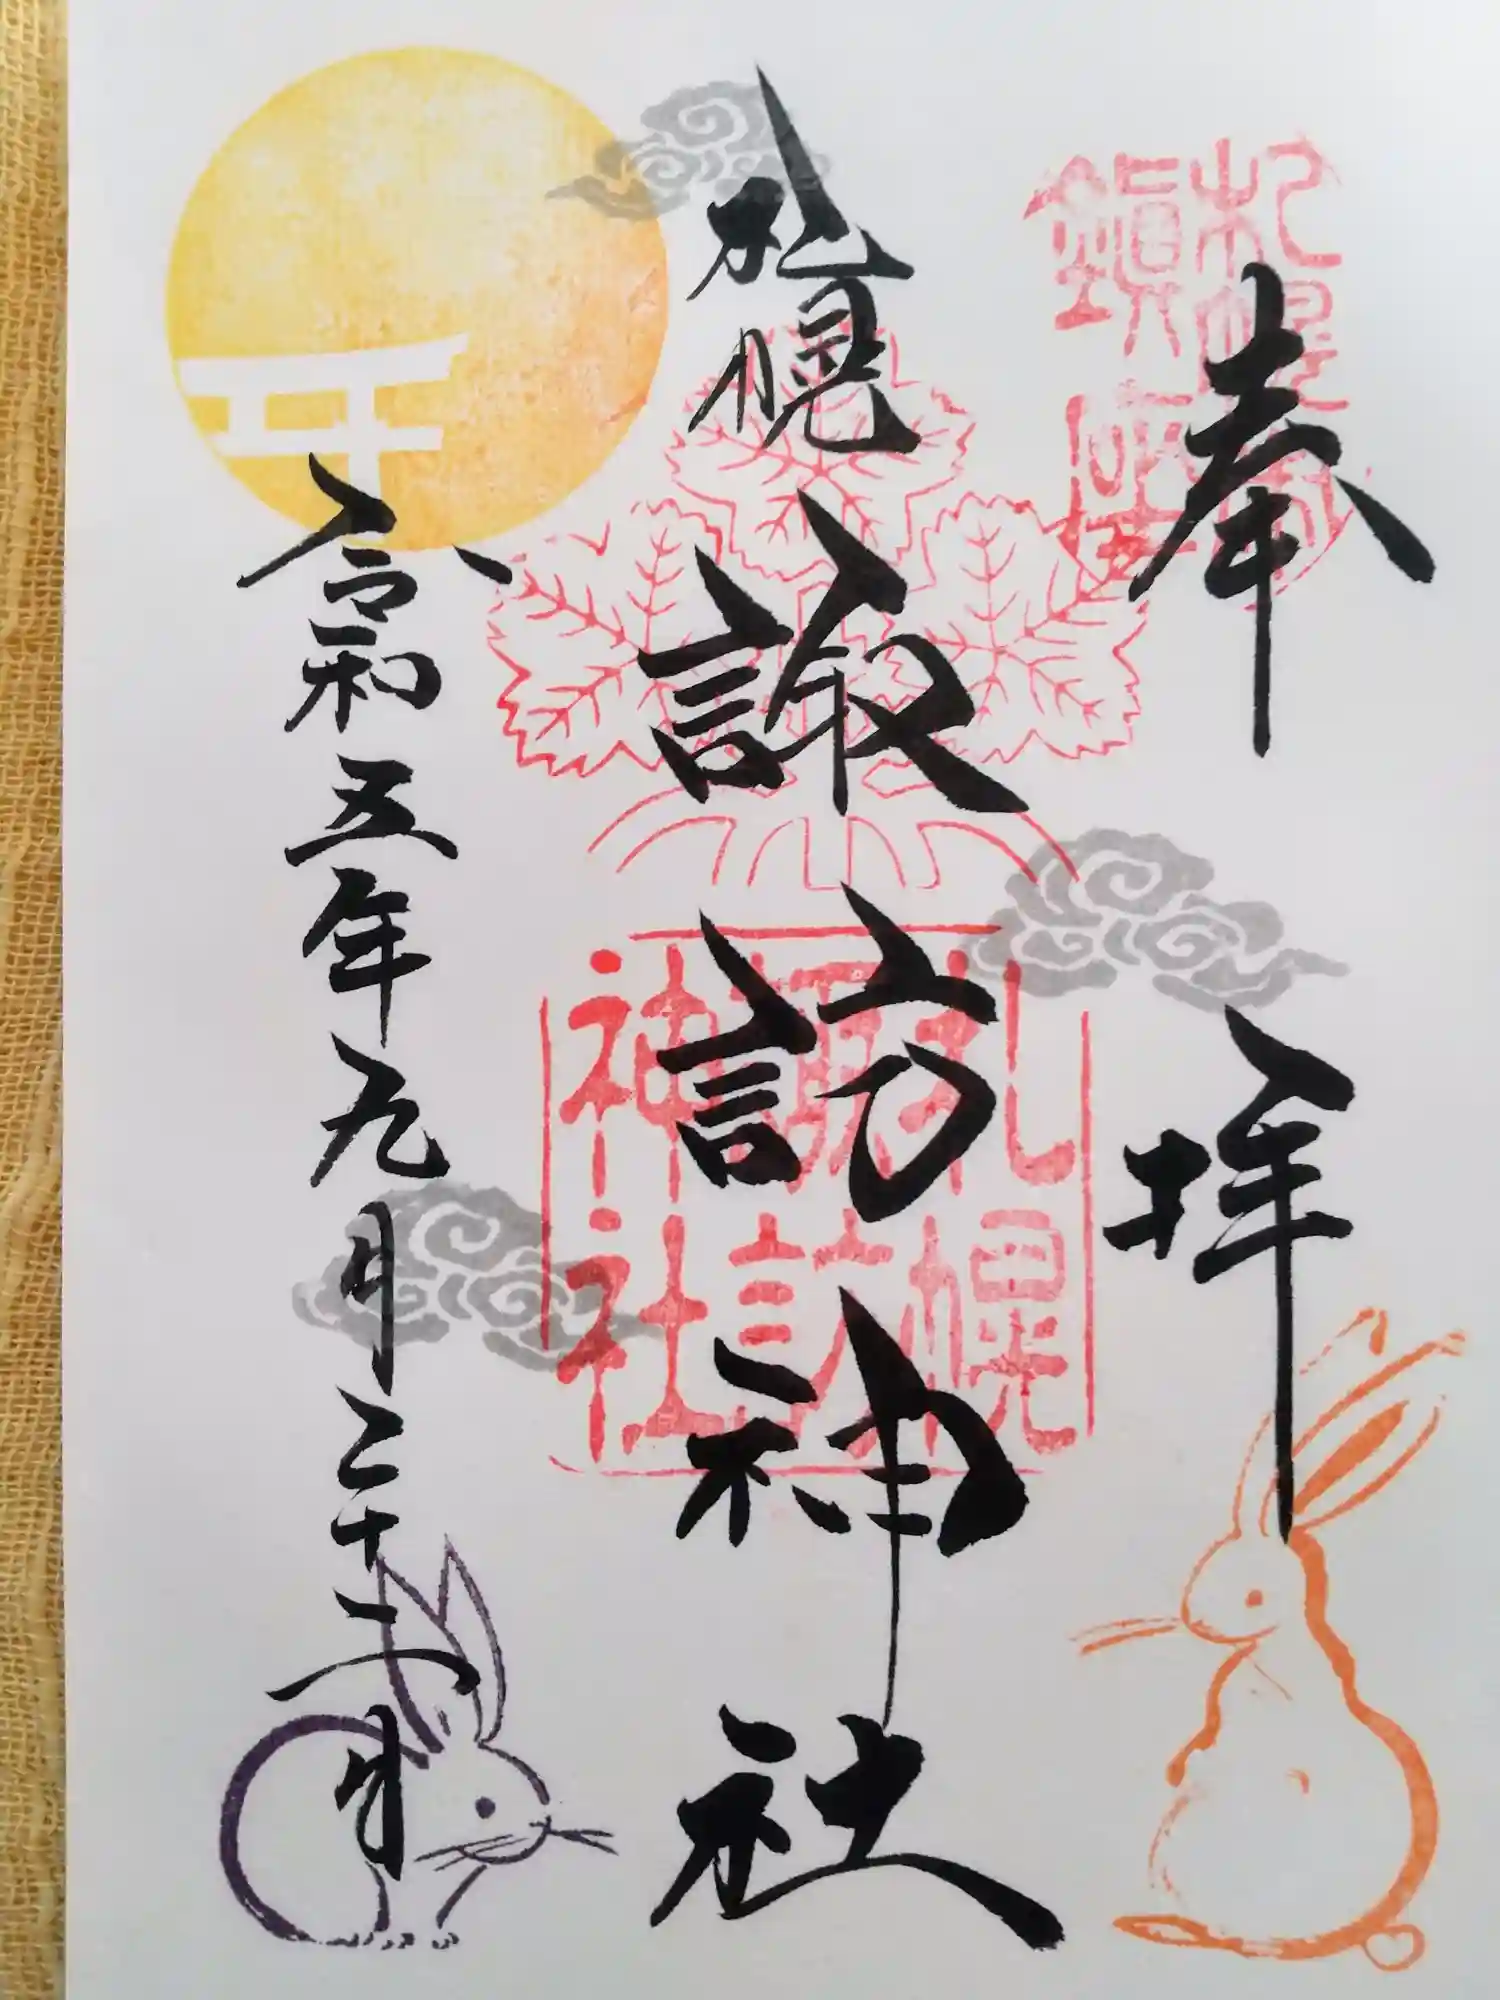 奉拝
札幌
諏訪神社
令和五年九月二十二日
札幌
鎮座
札幌
諏訪
神社